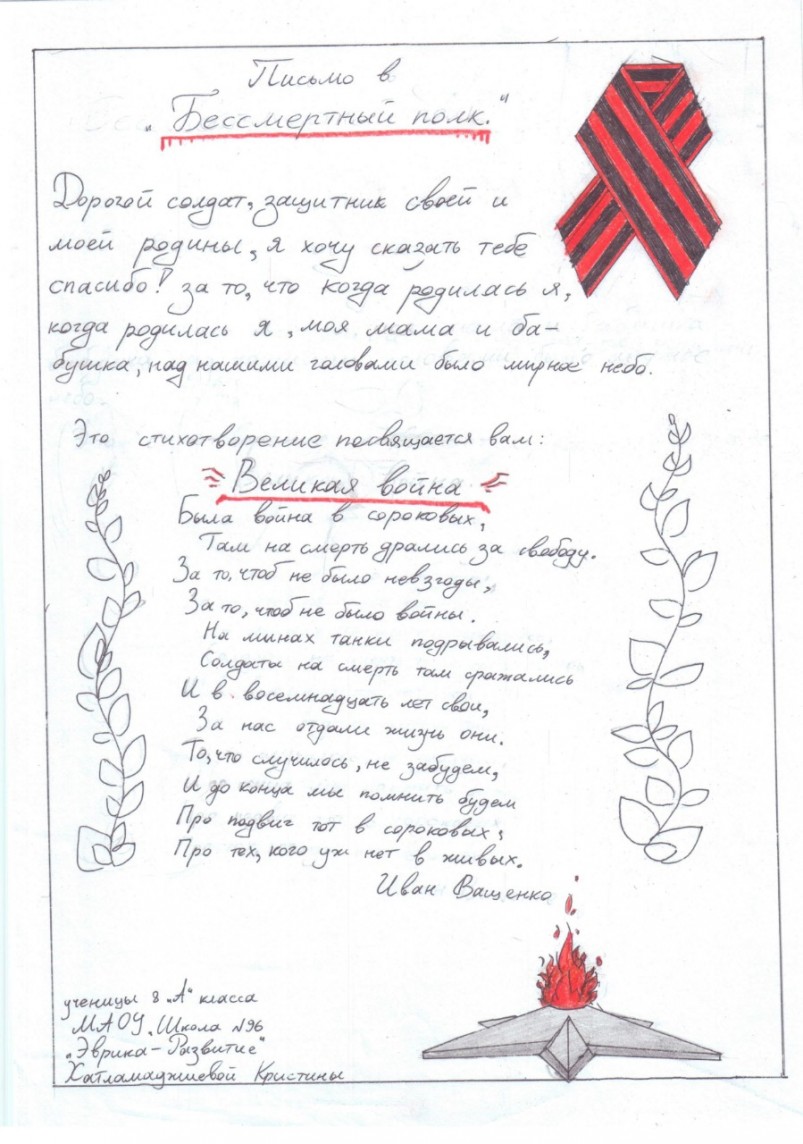 Письмо в
„Бессмертный полк."
Дорогой солдат, защитник своей и
моей родины, я хочу сказать тебе
спасибо! за то, что когда родилась я,
когда родилась я, моя мама и ба-
бушка, над нашими головами было мирное небо.
Это стихотворение посвящается вам:
Великая война
Была война в сороковых,
Там на смерть дрались за свободу.
За то, чтоб не было невзгоды,
За то, чтоб не было войны.
На минах танки подрывались,
Солдаты на смерть там сражались
И в восемнадцать лет свои,
За нас отдали жизнь они.
То, что случилось, не забудем,
И до конца мы помнить будем
Про подвиг тот в сороковых,
Про тех, кого уж нет в живых.
Иван Ващенко
ученицы 8 „А" класса
МАОУ „Школа №96
„Эврика-Развитие"
Хатламаджиевой Кристины